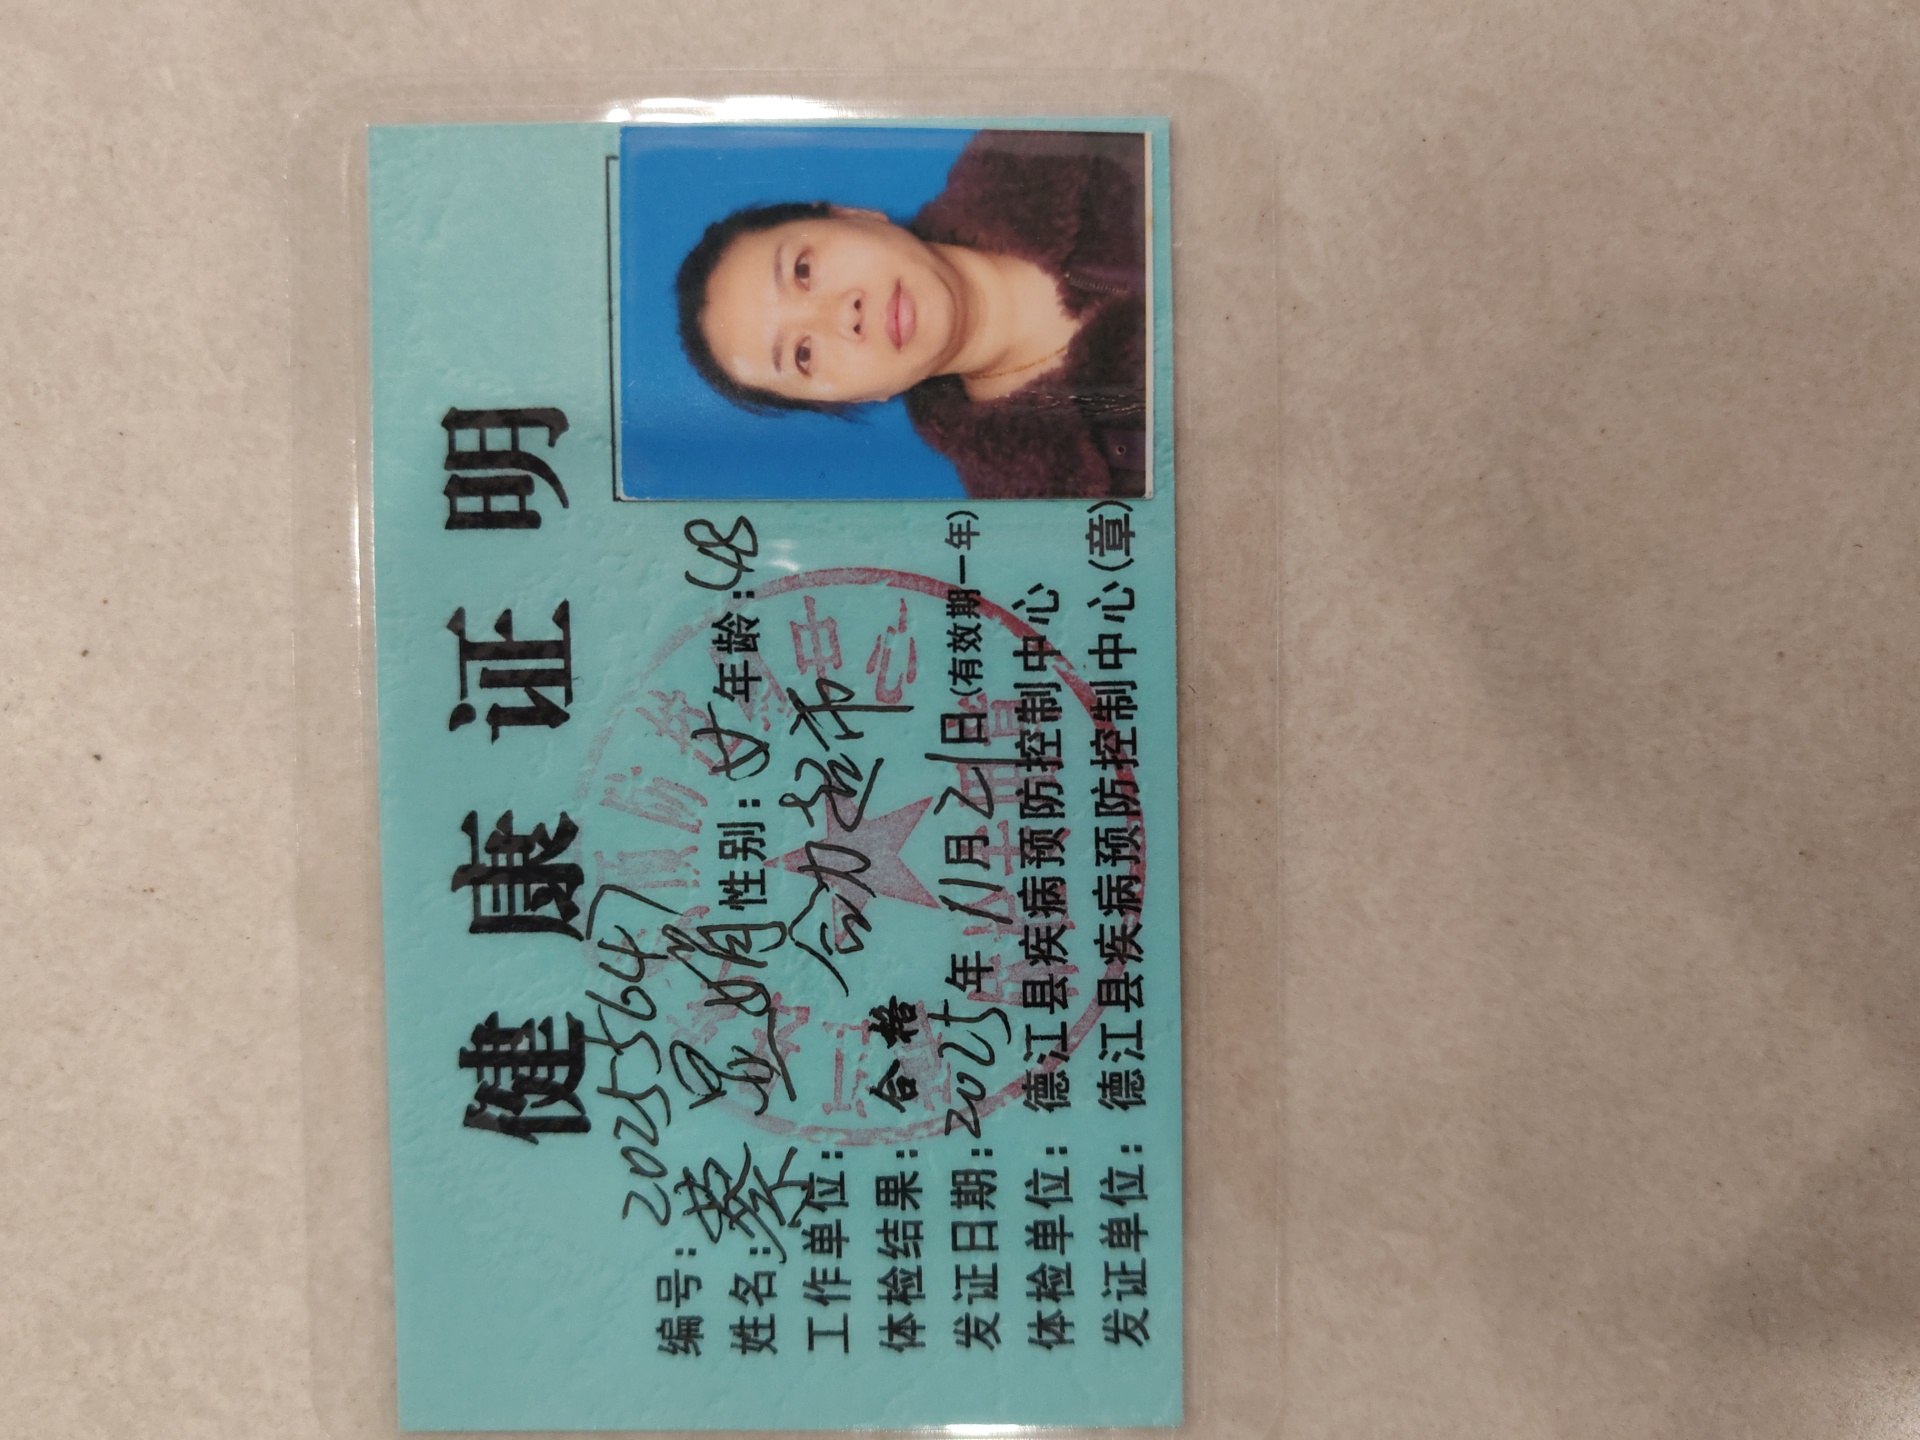 健康证明
编号：20255647
姓名：蔡显娟 性别：女 年龄：48
工作单位：合力超市
体检结果：合格
发证日期：2025年11月21日(有效期一年)
体检单位：德江县疾病预防控制中心
发证单位：德江县疾病预防控制中心(章)